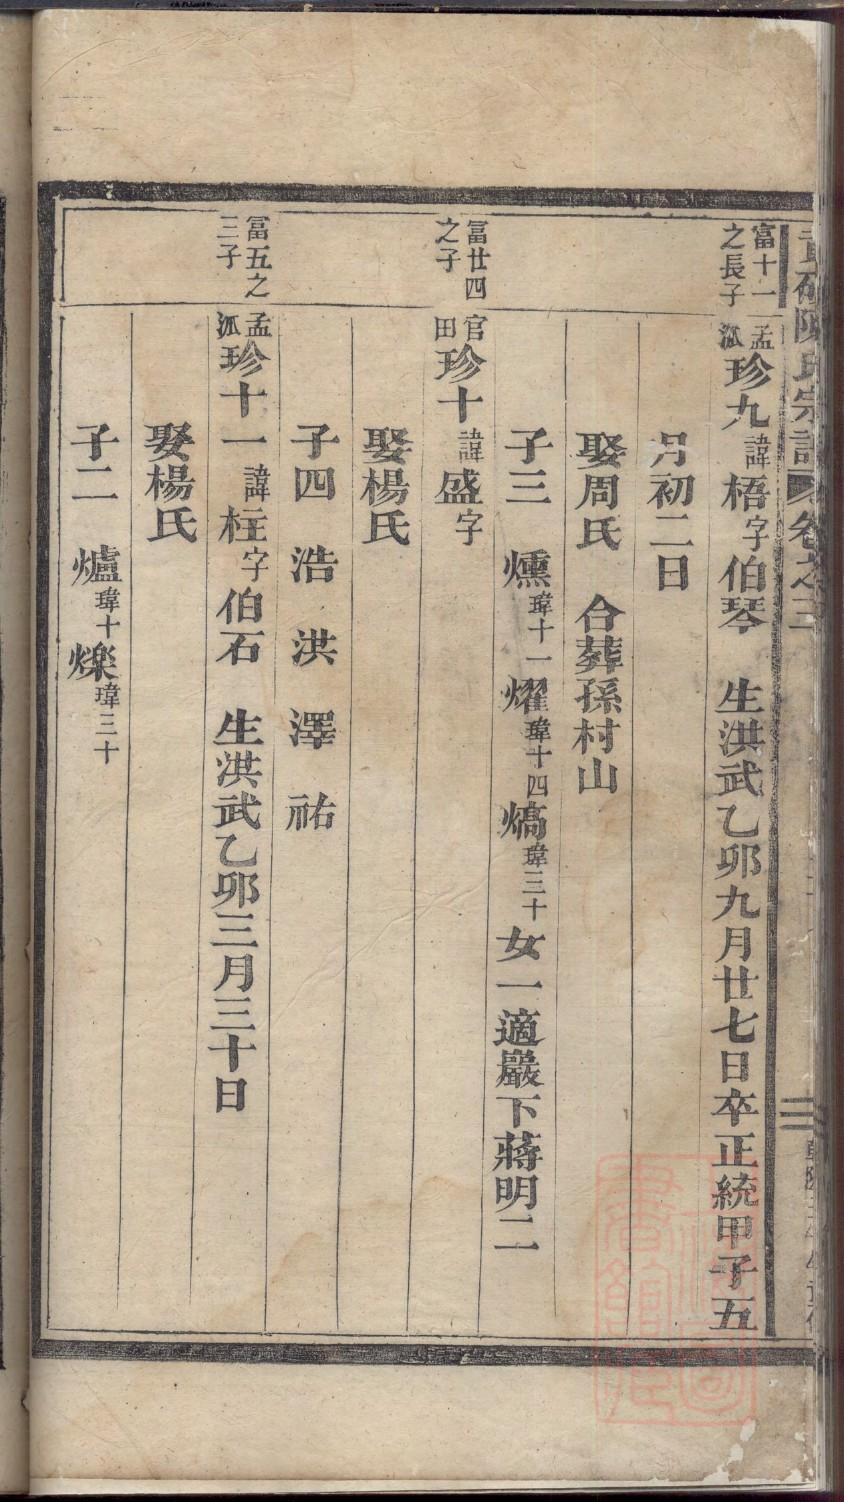 陳氏宗譜 卷之三
富十一之長子
孟派珍九諱梧字伯琴 生洪武乙卯九月廿七日卒正統甲子五
月初二日
娶周氏 合葬孫村山
子三 燻瑋十一燿瑋十四熇瑋三十女一適嚴下蔣明二
富廿四之子
官田珍十諱盛字
娶楊氏
子四 浩 洪 澤 祐
富五之三子
孟派珍十一諱柱字伯石 生洪武乙卯三月三十日
娶楊氏
子二 爐瑋十爍瑋三十